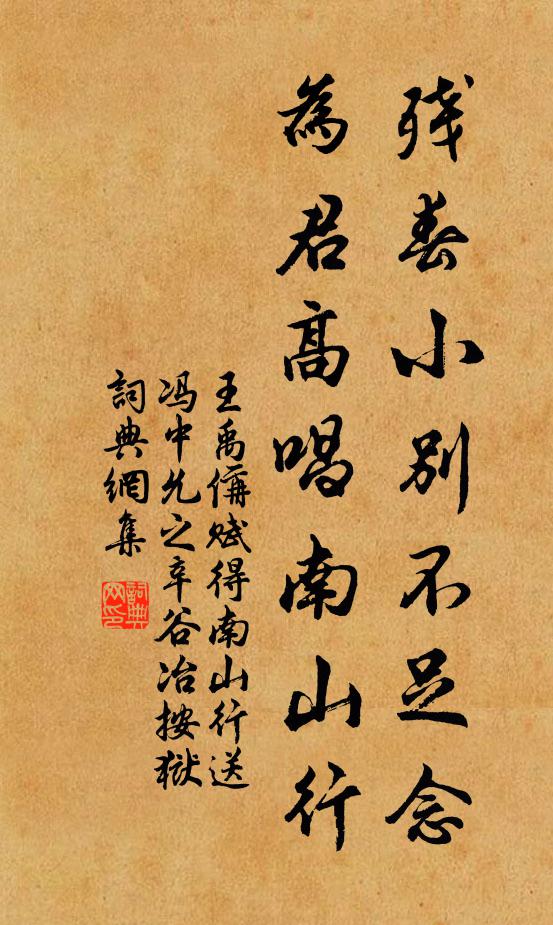 残春小别不足念
為君高唱南山行
王禹偁赋得南山行送
冯中允之辛谷冶按獄
詞典網集
詞典网印